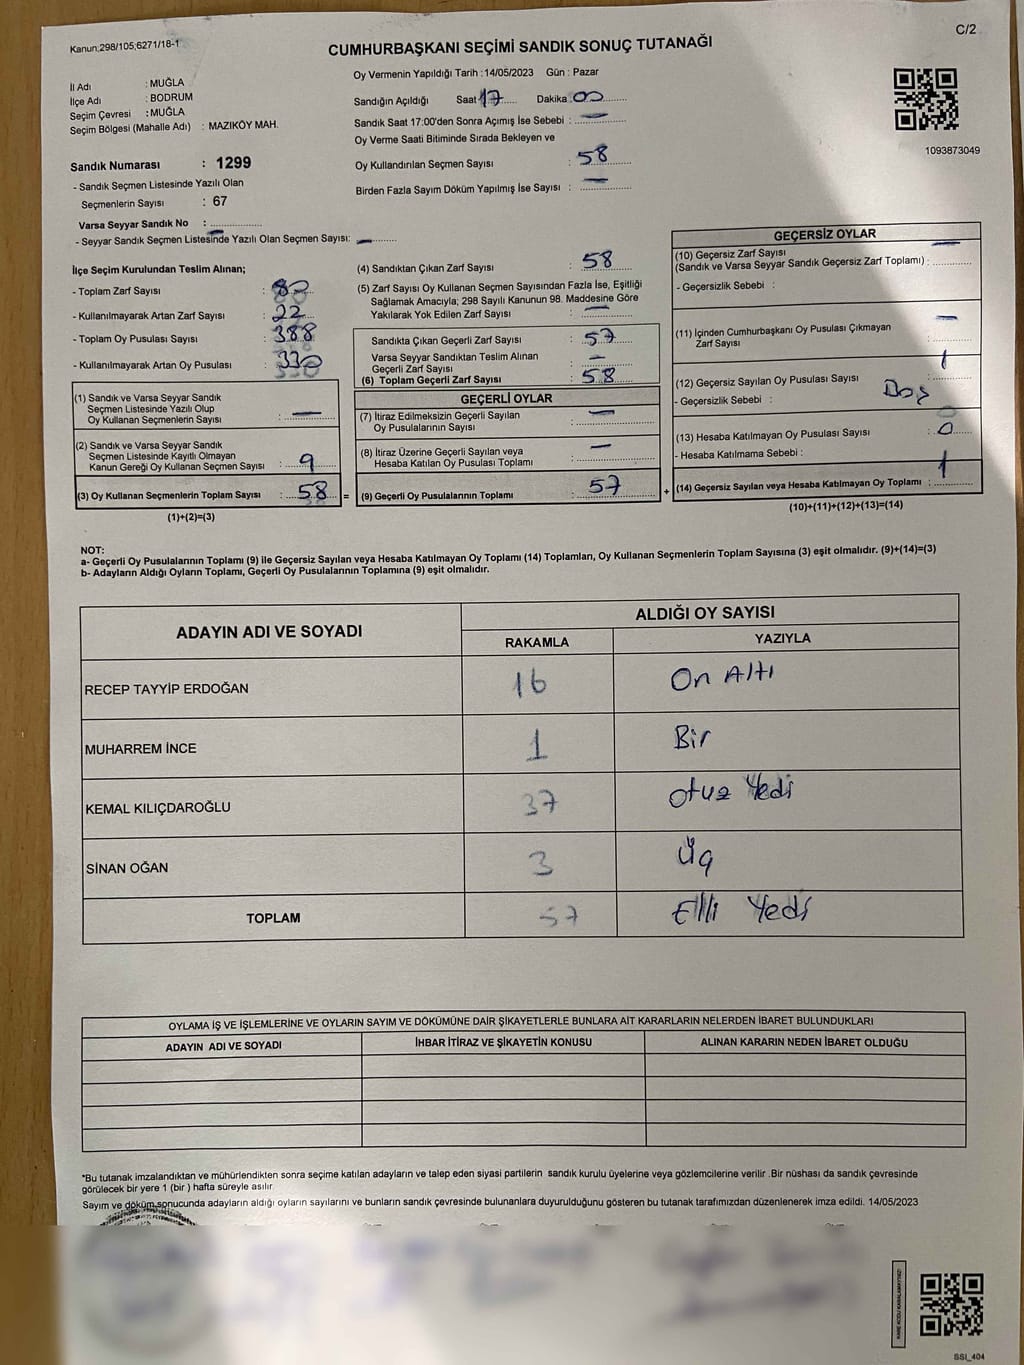 Kanun;298/105;6271/18-1
C/2
CUMHURBAŞKANI SEÇİMİ SANDIK SONUÇ TUTANAĞI
İl Adı : MUĞLA
İlçe Adı : BODRUM
Seçim Çevresi : MUĞLA
Seçim Bölgesi (Mahalle Adı) : MAZIKÖY MAH.
Sandık Numarası : 1299
- Sandık Seçmen Listesinde Yazılı Olan
Seçmenlerin Sayısı : 67
Varsa Seyyar Sandık No : —
- Seyyar Sandık Seçmen Listesinde Yazılı Olan Seçmen Sayısı: —
Oy Vermenin Yapıldığı Tarih :14/05/2023 Gün : Pazar
Sandığın Açıldığı Saat 17 Dakika 00
Sandık Saat 17:00'den Sonra Açımış İse Sebebi : —
Oy Verme Saati Bitiminde Sırada Bekleyen ve
Oy Kullandırılan Seçmen Sayısı : 58
Birden Fazla Sayım Döküm Yapılmış İse Sayısı : —
1093873049
İlçe Seçim Kurulundan Teslim Alınan;
- Toplam Zarf Sayısı : 80
- Kullanılmayarak Artan Zarf Sayısı : 22
- Toplam Oy Pusulası Sayısı : 388
- Kullanılmayarak Artan Oy Pusulası : 330
(1) Sandık ve Varsa Seyyar Sandık
Seçmen Listesinde Yazılı Olup
Oy Kullanan Seçmenlerin Sayısı : —
(2) Sandık ve Varsa Seyyar Sandık
Seçmen Listesinde Kayıtlı Olmayan
Kanun Gereği Oy Kullanan Seçmen Sayısı : 9
(3) Oy Kullanan Seçmenlerin Toplam Sayısı : 58 =
(1)+(2)=(3)
(4) Sandıktan Çıkan Zarf Sayısı : 58
(5) Zarf Sayısı Oy Kullanan Seçmen Sayısından Fazla İse, Eşitliği
Sağlamak Amacıyla; 298 Sayılı Kanunun 98. Maddesine Göre
Yakılarak Yok Edilen Zarf Sayısı : —
Sandıkta Çıkan Geçerli Zarf Sayısı : 57
Varsa Seyyar Sandıktan Teslim Alınan
Geçerli Zarf Sayısı : —
(6) Toplam Geçerli Zarf Sayısı : 58
GEÇERLİ OYLAR
(7) İtiraz Edilmeksizin Geçerli Sayılan
Oy Pusulalarının Sayısı : —
(8) İtiraz Üzerine Geçerli Sayılan veya
Hesaba Katılan Oy Pusulası Toplamı : —
(9) Geçerli Oy Pusulalarının Toplamı : 57 +
GEÇERSİZ OYLAR
(10) Geçersiz Zarf Sayısı
(Sandık ve Varsa Seyyar Sandık Geçersiz Zarf Toplamı) : —
- Geçersizlik Sebebi :
(11) İçinden Cumhurbaşkanı Oy Pusulası Çıkmayan
Zarf Sayısı : —
(12) Geçersiz Sayılan Oy Pusulası Sayısı : 1
- Geçersizlik Sebebi : Boş
(13) Hesaba Katılmayan Oy Pusulası Sayısı : 0
- Hesaba Katılmama Sebebi :
(14) Geçersiz Sayılan veya Hesaba Katılmayan Oy Toplamı : 1
(10)+(11)+(12)+(13)=(14)
NOT:
a- Geçerli Oy Pusulalarının Toplamı (9) ile Geçersiz Sayılan veya Hesaba Katılmayan Oy Toplamı (14) Toplamları, Oy Kullanan Seçmenlerin Toplam Sayısına (3) eşit olmalıdır. (9)+(14)=(3)
b- Adayların Aldığı Oyların Toplamı, Geçerli Oy Pusulalarının Toplamına (9) eşit olmalıdır.
ADAYIN ADI VE SOYADI ALDIĞI OY SAYISI
RAKAMLA YAZIYLA
RECEP TAYYİP ERDOĞAN 16 On Altı
MUHARREM İNCE 1 Bir
KEMAL KILIÇDAROĞLU 37 Otuz Yedi
SİNAN OĞAN 3 Üç
TOPLAM 57 Elli Yedi
OYLAMA İŞ VE İŞLEMLERİNE VE OYLARIN SAYIM VE DÖKÜMÜNE DAİR ŞİKAYETLERLE BUNLARA AİT KARARLARIN NELERDEN İBARET BULUNDUKLARI
ADAYIN ADI VE SOYADI İHBAR İTİRAZ VE ŞİKAYETİN KONUSU ALINAN KARARIN NEDEN İBARET OLDUĞU
*Bu tutanak imzalandıktan ve mühürlendikten sonra seçime katılan adayların ve talep eden siyasi partilerin sandık kurulu üyelerine veya gözlemcilerine verilir .Bir nüshası da sandık çevresinde
görülecek bir yere 1 (bir ) hafta süreyle asılır.
Sayım ve döküm sonucunda adayların aldığı oyların sayılarını ve bunların sandık çevresinde bulunanlara duyurulduğunu gösteren bu tutanak tarafımızdan düzenlenerek imza edildi. 14/05/2023
KARE KODU KARALAMAYINIZ!
SSI_404